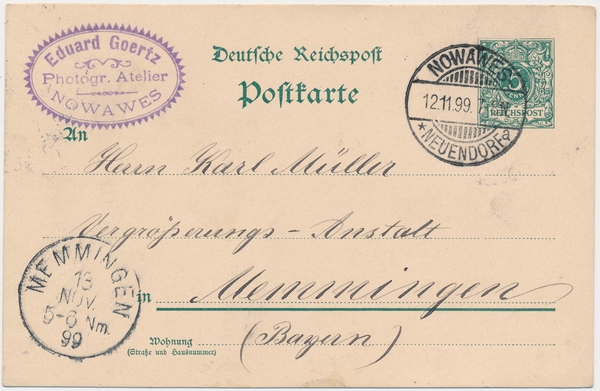 Eduard Goertz
Photogr. Atelier
NOWAWES
Deutsche Reichspost
Postkarte
NOWAWES
12.11.99.
*NEUENDORF a
5
REICHSPOST
An
Herrn Karl Müller
Vergrößerungs-Anstalt
in Memmingen
(Bayern)
MEMMINGEN
13
NOV.
5-6 Nm.
99
Wohnung
(Straße und Hausnummer)